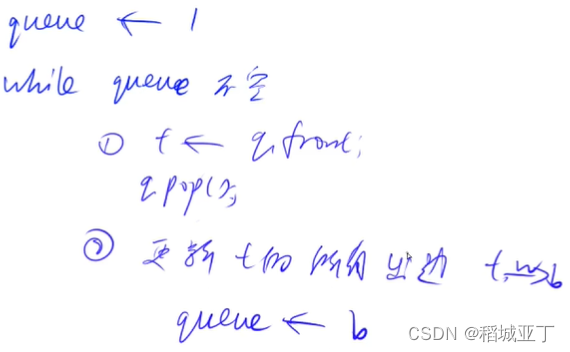 queue ← 1
while queue 不空
① t ← q.front;
q.pop();
② 更新 t的 所有 出边 t →w b
queue ← b
CSDN @稻城亚丁